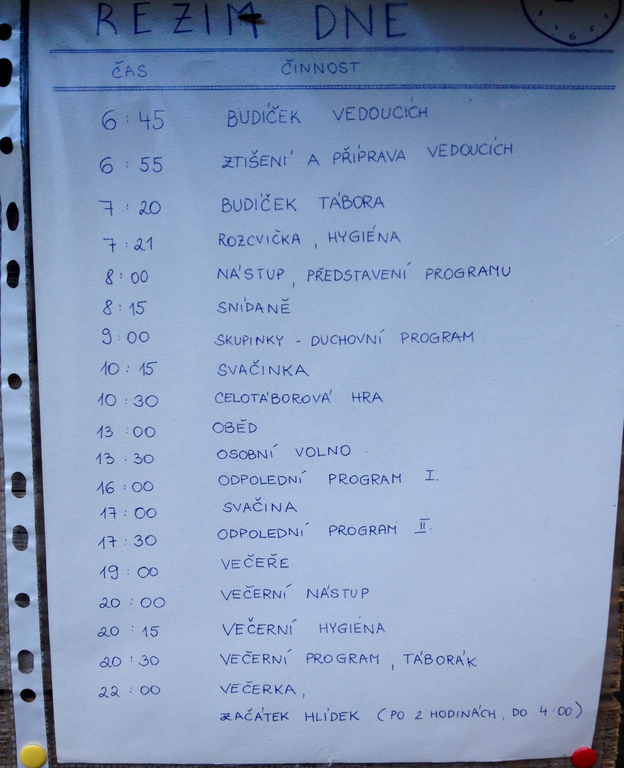 REZIM DNE
6
ČAS ČINNOST
6:45 BUDÍČEK VEDOUCÍCH
6:55 ZTIŠENÍ A PŘÍPRAVA VEDOUCÍCH
7:20 BUDÍČEK TÁBORA
7:21 ROZCVIČKA, HYGIÉNA
8:00 NÁSTUP, PŘEDSTAVENÍ PROGRAMU
8:15 SNÍDANĚ
9:00 SKUPINKY - DUCHOVNÍ PROGRAM
10:15 SVAČINKA
10:30 CELOTÁBOROVÁ HRA
13:00 OBĚD
13.30 OSOBNÍ VOLNO
16:00 ODPOLEDNÍ PROGRAM I.
17:00 SVAČINA
17:30 ODPOLEDNÍ PROGRAM II.
19:00 VEČEŘE
20:00 VEČERNÍ NÁSTUP
20:15 VEČERNÍ HYGIÉNA
20:30 VEČERNÍ PROGRAM, TÁBORÁK
22:00 VEČERKA,
ZAČÁTEK HLÍDEK (PO 2 HODINÁCH, DO 4:00)